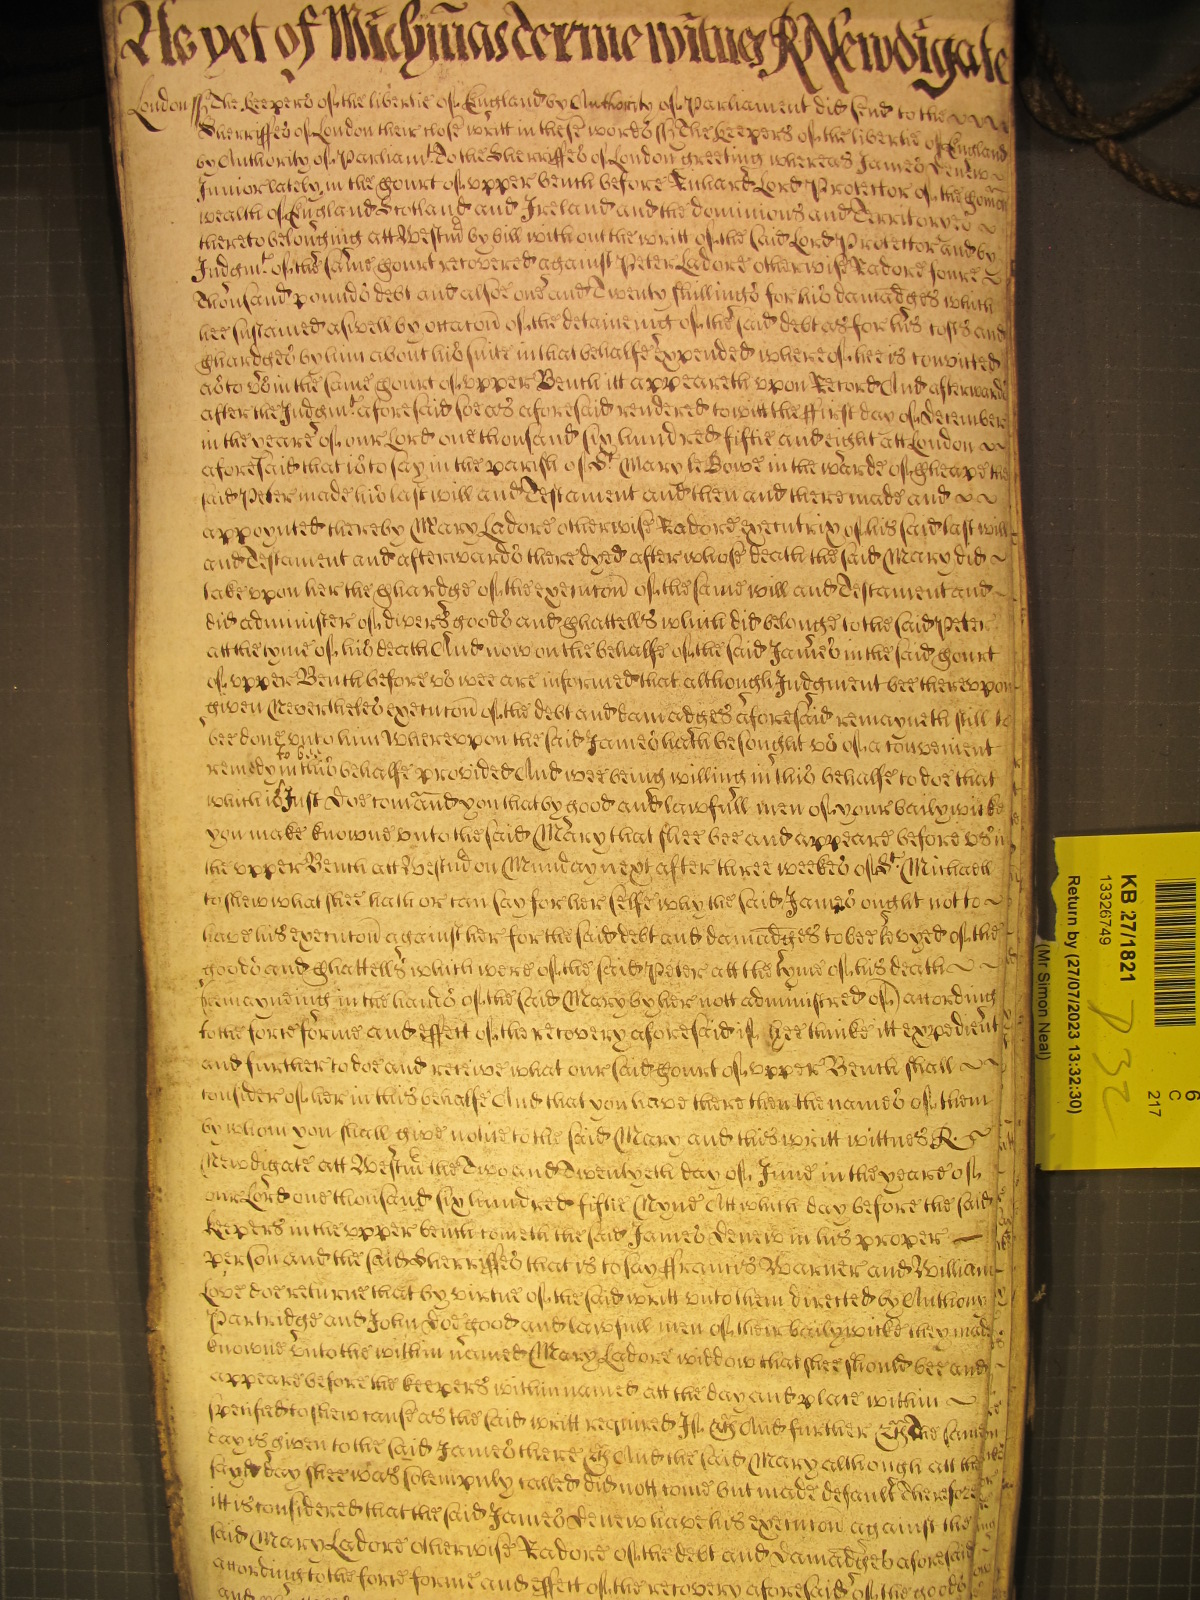 As yet of Mich'mas terme witnes R Newdigate
London ss The keepers of the libertie of England by Authority of Parliament did send to the
Sherriffes of London their close writt in these words ss The keepers of the libertie of England
by Authority of Parliamt. To the Sherriffes of London greeting whereas James Denew
Junior lately in the Court of upper bench before Richard Lord Protector of the Com̄on
wealth of England Scotland and Ireland and the dominions and Territoryes
thereto belonging att Westmr by bill without the writt of the said Lord Protector and by
Judgmt. of the same Court recovered against Peter Ladore otherwise Radore foure
Thousand pounds debt and alsoe one and Twenty shillings for his damadges which
hee sustained aswell by occac̄on of the detaineing of the said debt as for his costs and
Chardges by him about his suite in that behalfe expended whereof hee is convicted
as to us in the same Court of upper Bench itt appeareth upon Record And afterwards
after the Judgmt. aforesaid soe as aforesaid rendered to witt the ffirst day of December
in the yeare of our Lord one thousand six hundred fiftie and eight att London
aforesaid that is to say in the parish of St. Mary le Bowe in the warde of Cheape the
said Peter made his last will and Testament and then and there made and
appoynted thereby Mary Ladore otherwise Radore executrix of his said last will
and Testament and afterwards there dyed after whose death the said Mary did
take upon her the Chardge of the execuc̄on of the same will and Testament and
did administer of divers goods and Chattells which did belonge to the said Peter
att the tyme of his death And now on the behalfe of the said James in the said Court
of upper Bench before us wee are informed that although Judgment bee thereupon
given Neverthelës execuc̄on of the debt and damadges aforesaid remayneth still to
bee done unto him Whereupon the said James hath besought us of a convenient
remedy to bee in this behalfe provided And wee being willing in this behalfe to doe that
which is Just Doe com̄and you that by good and lawfull men of your bailywicke
you make knowne unto the said Mary that shee bee and appeare before us in
the upper Bench att Westmr on Munday next after three weekes of St. Michaell
to shew what shee hath or can say for her selfe why the said James ought not to
have his execuc̄on against her for the said debt and damadges to bee levyed of the
goods and Chattells which were of the said Peter att the tyme of his death
(remayneing in the hands of the said Mary by her nott administred of) according
to the force forme and effect of the recovery aforesaid if hee thinke itt expedient
and further to doe and receive what our said Court of upper Bench shall
consider of her in this behalfe And that you have there then the names of them
by whom you shall give notice to the said Mary and this writt wittnes R
Newdigate att Westmr the Two and Twentyeth day of June in the yeare of
our Lord one thousand six hundred fiftie Nyne Att which day before the said
keepers in the upper bench cometh the said James Denew in his proper
person and the said Sherriffes that is to say ffrancis Warner and William
Love doe returne that by virtue of the said writt unto them directed by Anthony
Partridge and John Doe good and lawfull men of their bailywicke they made
knowne unto the within named Mary Ladore widdow that shee should bee and
appeare before the keepers within named att the day and place within
specified to shew cause as the said writt required If &c And further &c The same
day is given to the said James there &c And the said Mary although att the
sayd day shee was solempnly called did nott come but made default Therefore
itt is considered that the said James Denew have his execuc̄on against the
said Mary Ladore otherwise Radore of the debt and Damadges aforesaid
according to the force forme and effect of the recovery aforesaid of the goods
KB 27/1821
13326749
Return by (27/07/2023 13:32:30)
(Mr Simon Neal)
P 32
6
C
217